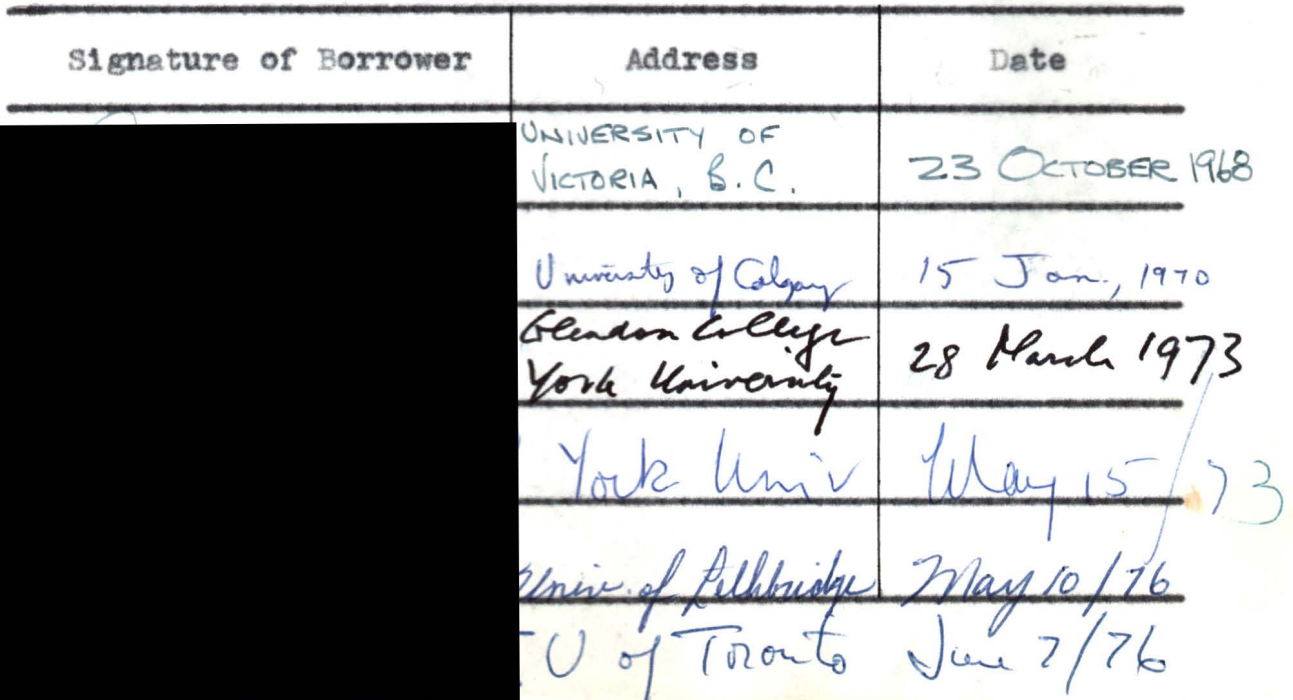 Signature of Borrower Address Date
UNIVERSITY OF
VICTORIA, B.C. 23 OCTOBER 1968
University of Calgary 15 Jan., 1970
Glendon College
York University 28 March 1973
York Univ May 15/73
Univ. of Lethbridge May 10/76
U of Toronto June 7/76